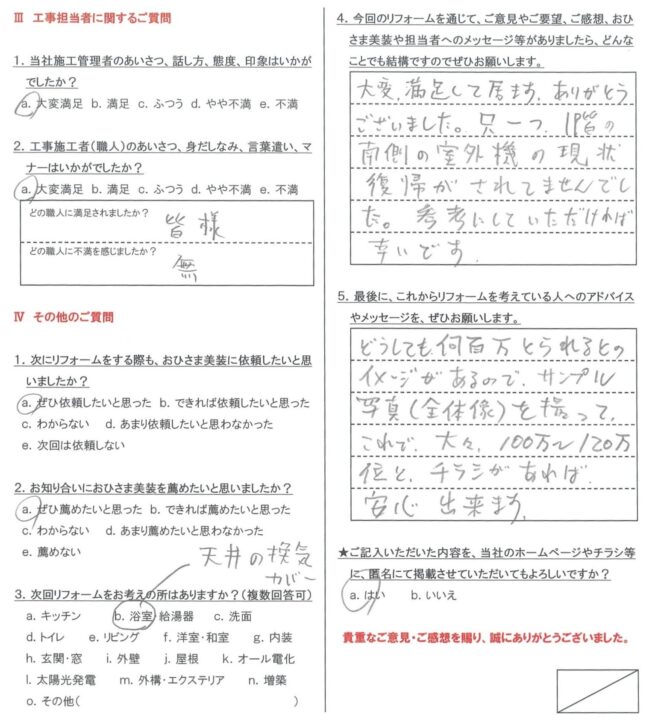 Ⅲ 工事担当者に関するご質問
1. 当社施工管理者のあいさつ、話し方、態度、印象はいかが
でしたか?
a. 大変満足 b. 満足 c. ふつう d. やや不満 e. 不満
2. 工事施工者(職人)のあいさつ、身だしなみ、言葉遣い、マ
ナーはいかがでしたか?
a. 大変満足 b. 満足 c. ふつう d. やや不満 e. 不満
どの職人に満足されましたか?
皆様
どの職人に不満を感じましたか?
無
Ⅳ その他のご質問
1. 次にリフォームをする際も、おひさま美装に依頼したいと思
いましたか?
a. ぜひ依頼したいと思った b. できれば依頼したいと思った
c. わからない d. あまり依頼したいと思わなかった
e. 次回は依頼しない
2. お知り合いにおひさま美装を薦めたいと思いましたか?
a. ぜひ薦めたいと思った b. できれば薦めたいと思った
c. わからない d. あまり薦めたいと思わなかった
e. 薦めない
天井の換気
カバー
3. 次回リフォームをお考えの所はありますか?(複数回答可)
a. キッチン b. 浴室・給湯器 c. 洗面
d. トイレ e. リビング f. 洋室・和室 g. 内装
h. 玄関・窓 i. 外壁 j. 屋根 k. オール電化
l. 太陽光発電 m. 外構・エクステリア n. 増築
o. その他( )
4. 今回のリフォームを通じて、ご意見やご要望、ご感想、おひ
さま美装や担当者へのメッセージ等がありましたら、どんな
ことでも結構ですのでぜひお願いします。
大変、満足して居ます。ありがとう
ございました。只一つ、1階の
南側の室外機の現状
復帰がされてませんでし
た。参考にしていただければ
幸いです。
5. 最後に、これからリフォームを考えている人へのアドバイス
やメッセージを、ぜひお願いします。
どうしても何百万とられるとの
イメージがあるので、サンプル
写真(全体像)を撮って、
これで、大々、100万~120万
位と、チラシがあれば
安心出来ます。
★ご記入いただいた内容を、当社のホームページやチラシ等
に、匿名にて掲載させていただいてもよろしいですか?
a. はい b. いいえ
貴重なご意見・ご感想を賜り、誠にありがとうございました。